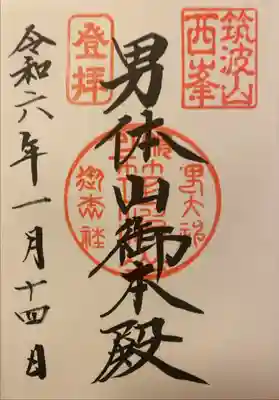 筑波山
西峯
登拝
男体山御本殿
令和六年一月十四日